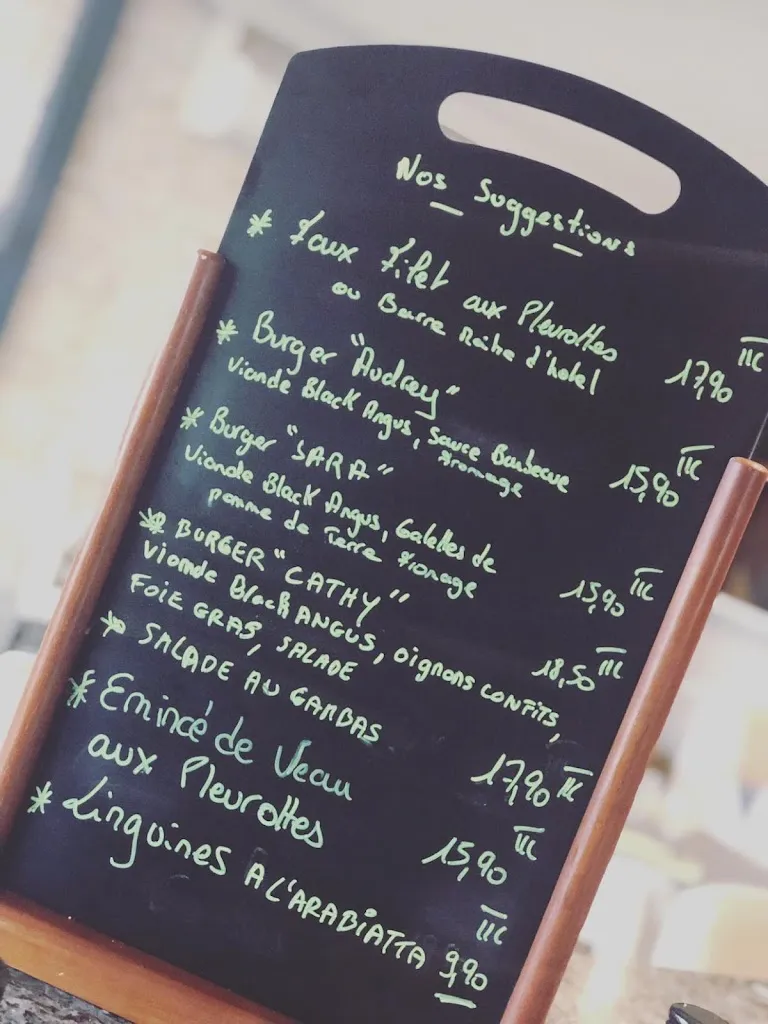 Nos Suggestions
* Faux Filet aux Pleurottes
ou Beurre Maître d'hotel 17,90 TTC
* Burger "Audrey"
Viande Black Angus, Sauce Barbecue
Fromage 15,90 TTC
* Burger "SARA"
Viande Black Angus, Galettes de
pomme de Terre Fromage 15,90 TTC
* BURGER "CATHY"
Viande Black ANGUS, oignons confits,
FOIE GRAS, SALADE 18,50 TTC
* SALADE AU GAMBAS 17,90 TTC
* Emincé de Veau
aux Pleurottes 15,90 TTC
* Linguines A L'ARABIATTA 9,90 TTC